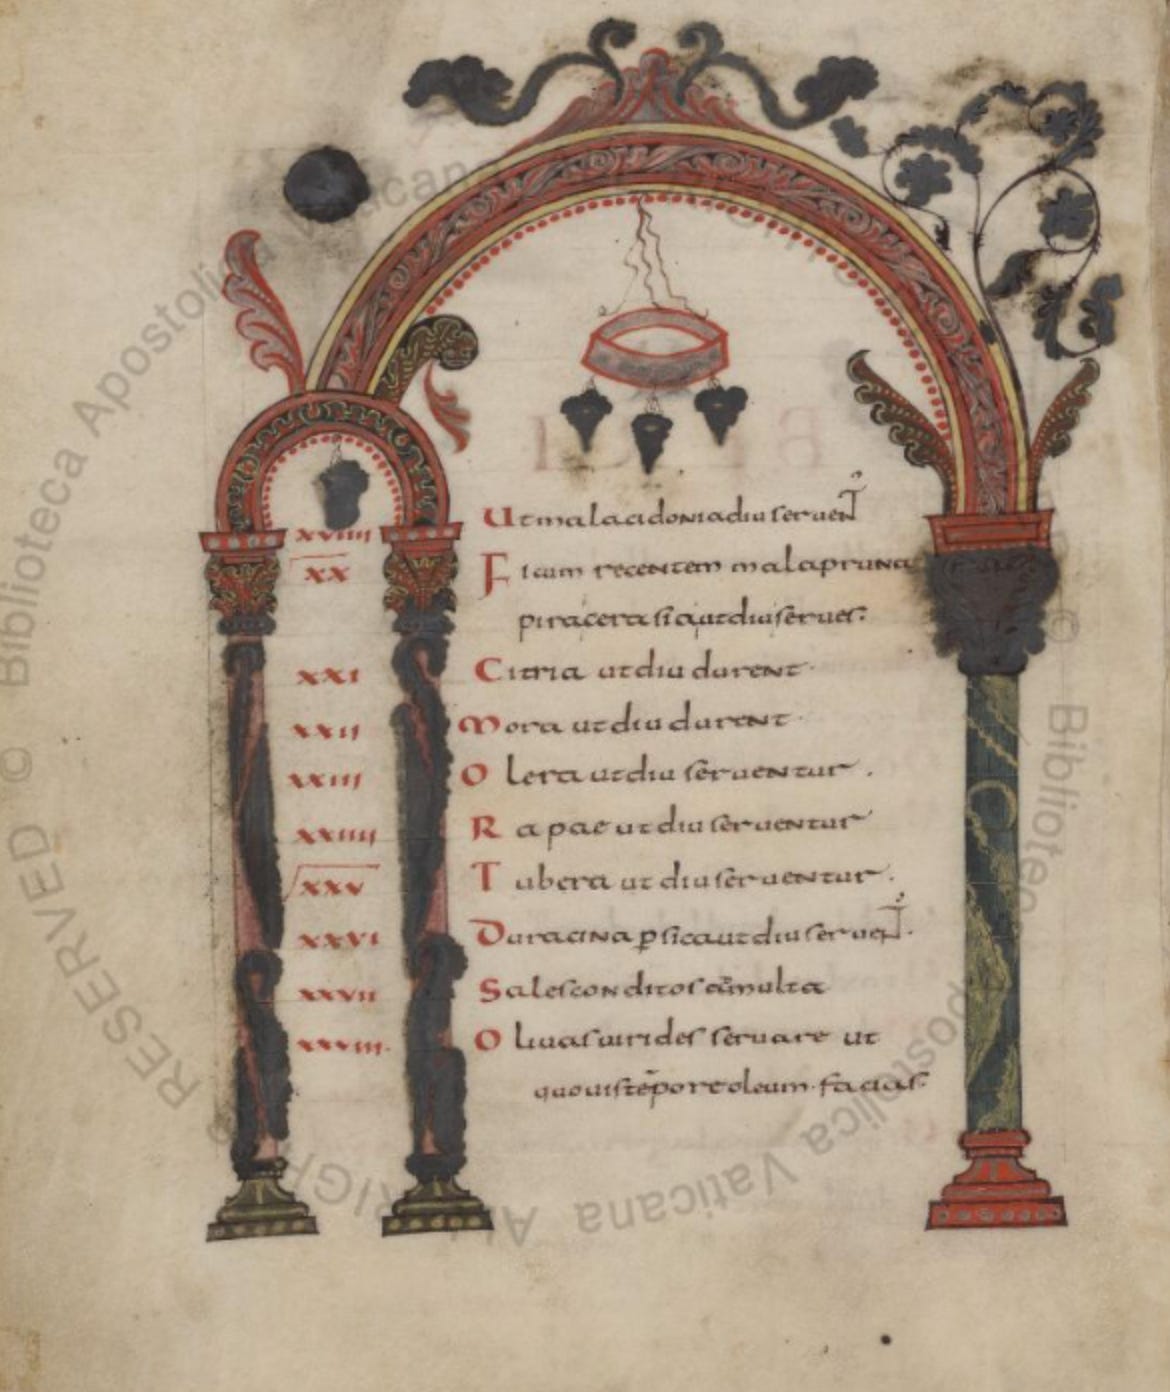 xviiii Ut mala cidonia diu seruent̄
xx Ficum recentem mala pruna
pira cerasia ut diu serues.
xxi Citria ut diu durent.
xxii Mora ut diu durent.
xxiii Olera ut diu seruentur.
xxiiii Rapae ut diu seruentur
xxv Tubera ut diu seruentur.
xxvi Duracina ꝑsica ut diu seruent̄.
xxvii Sales conditos ad multa
xxviii. Oliuas uirides seruare ut
quouis tēpore oleum facias.
© Biblioteca Apostolica Vaticana
RIGHTS RESERVED ©
© Biblioteca Apostolica Vaticana